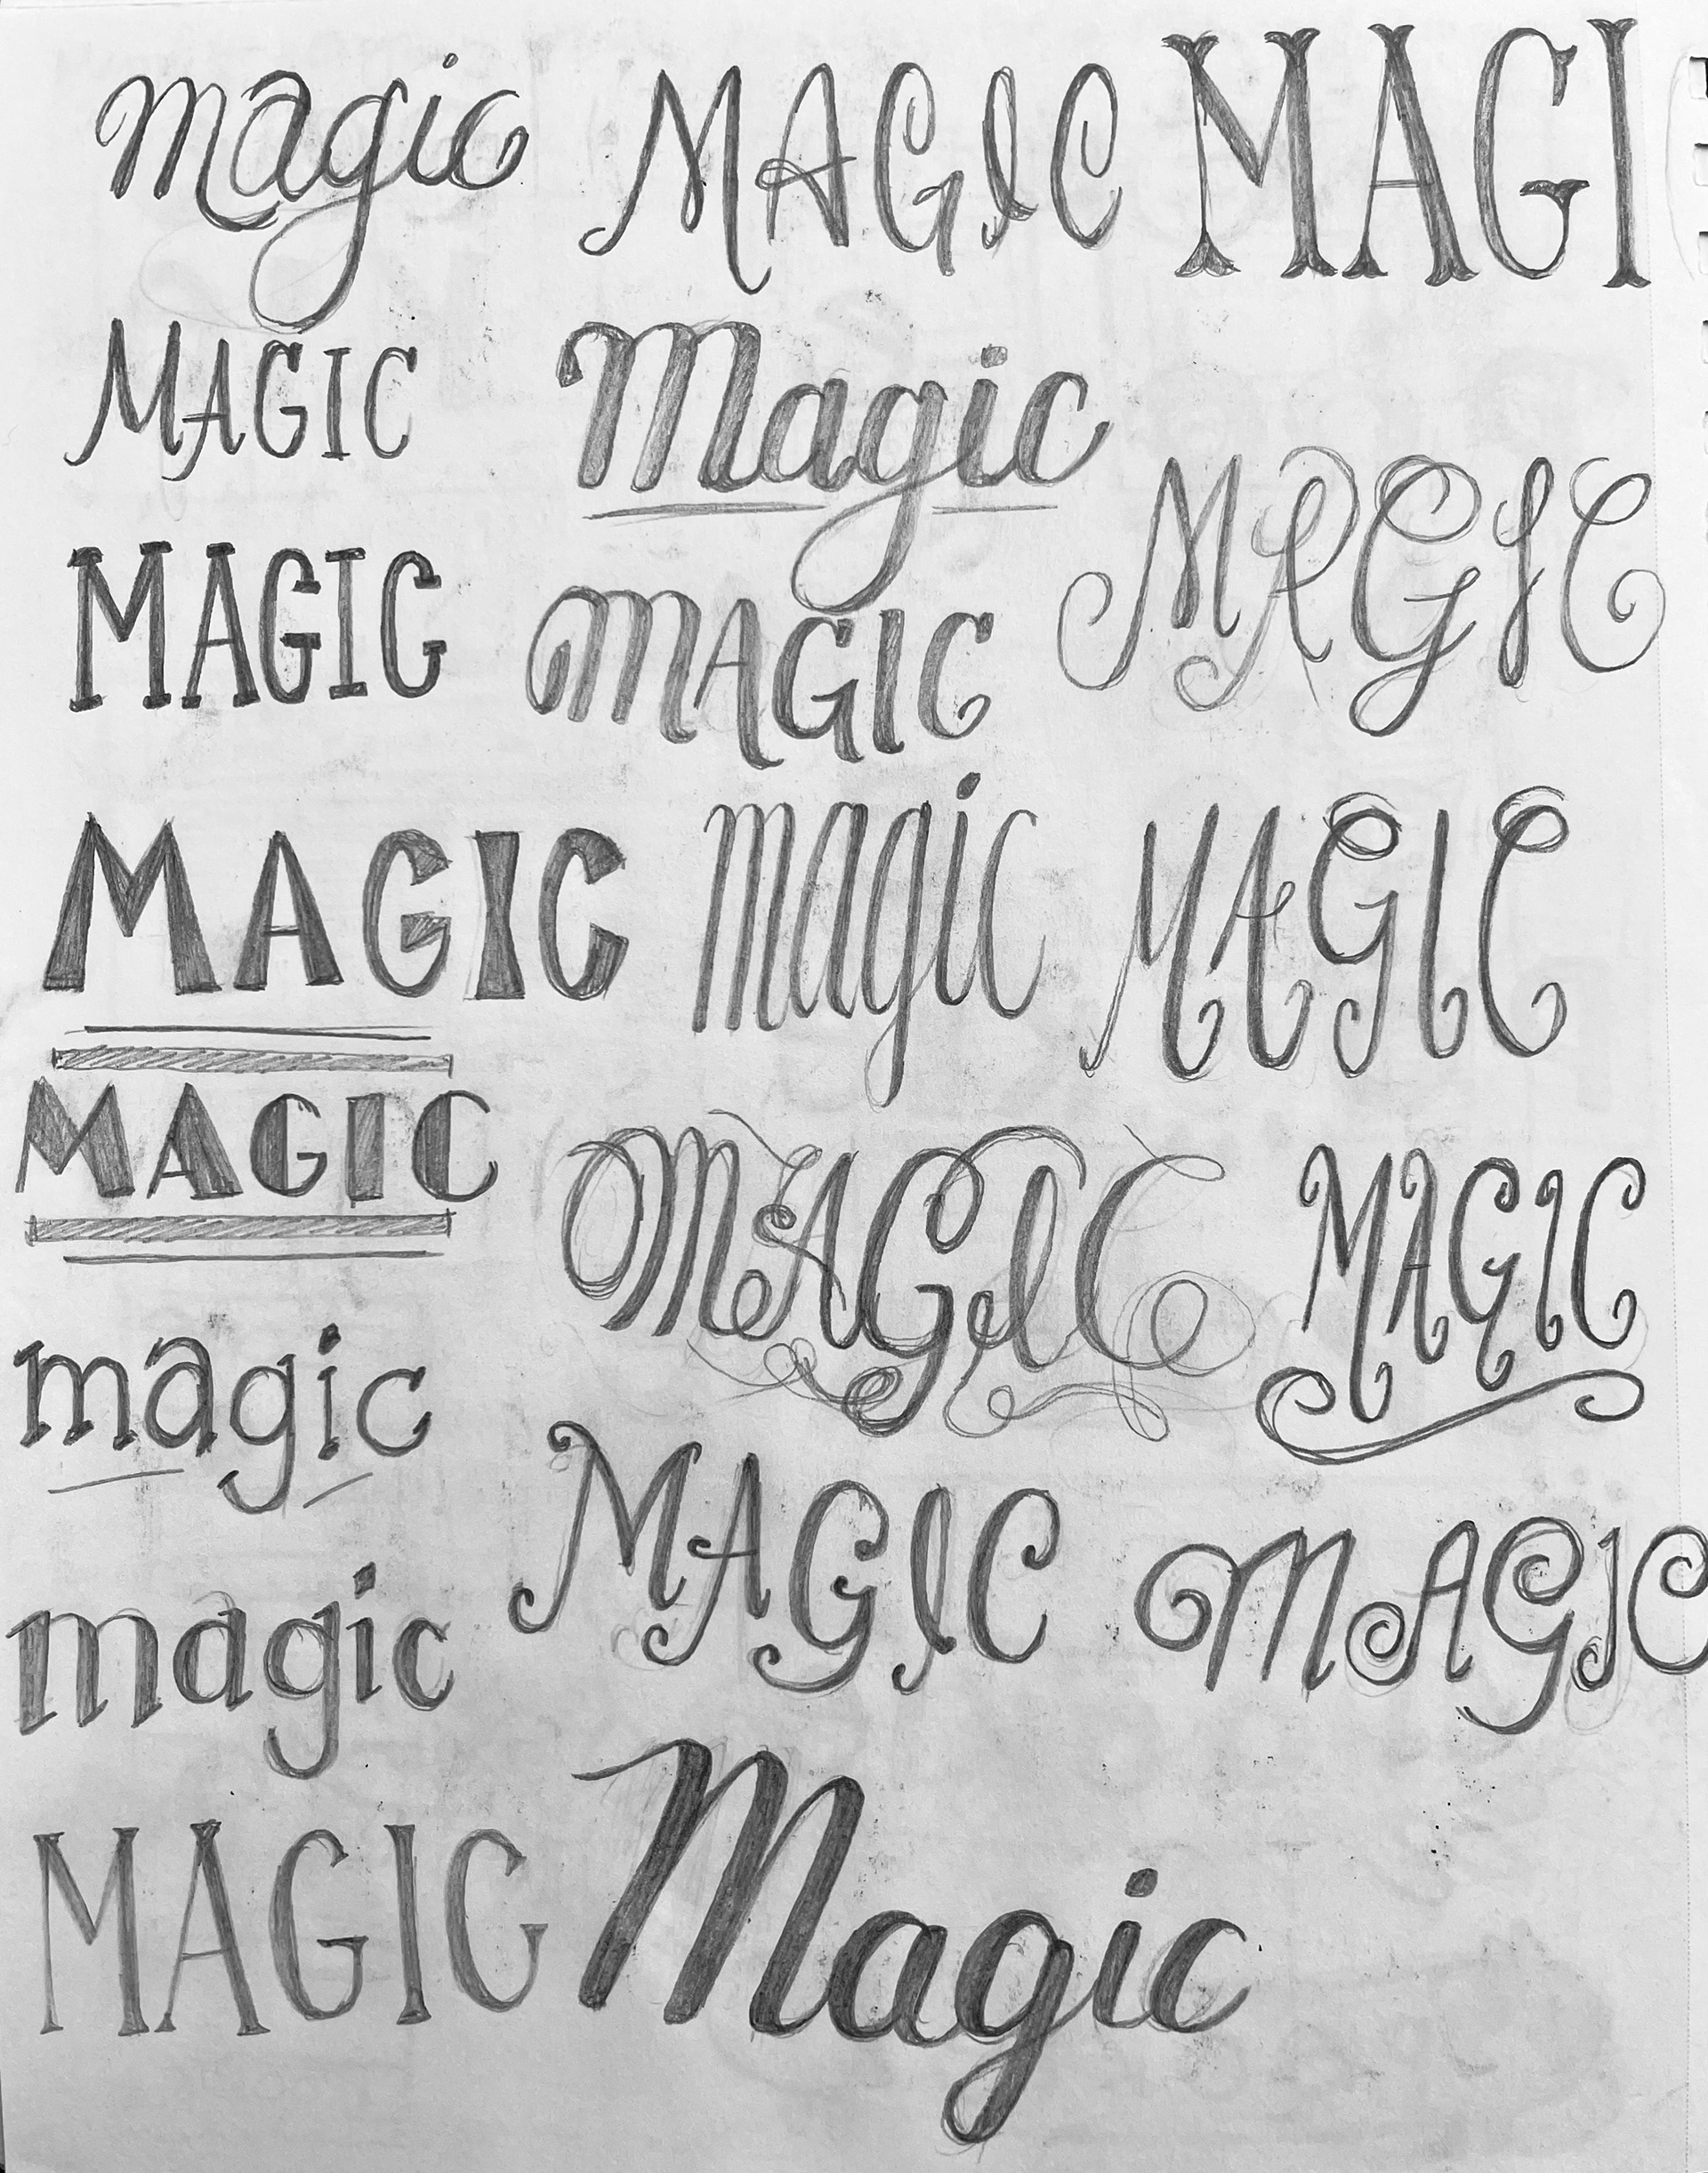 magic MAGIC MAGI
MAGIC Magic
MAGIC MAGIC MAGIC
MAGIC magic MAGIC
MAGIC MAGIC MAGIC
magic MAGIC MAGIC
magic
MAGIC Magic